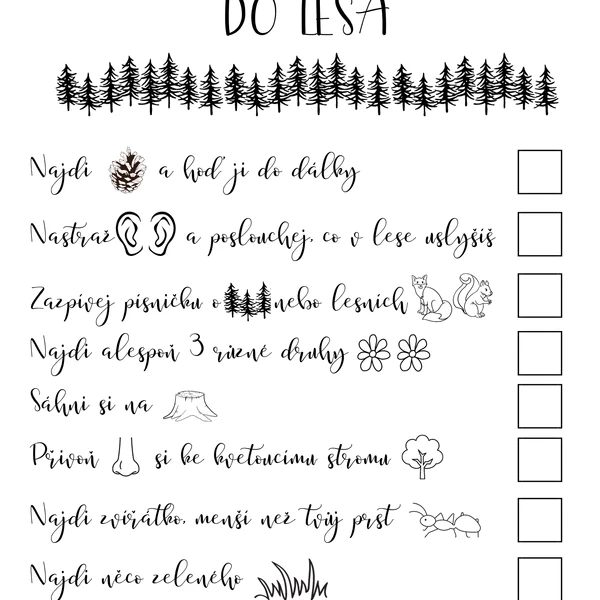 DO LESA
Najdi a hoď ji do dálky
Nastraž a poslouchej, co v lese uslyšíš
Zazpívej písničku o nebo lesních
Najdi alespoň 3 různé druhy
Sáhni si na
Přivoň si ke kvetoucímu stromu
Najdi zvířátko, menší než tvůj prst
Najdi něco zeleného